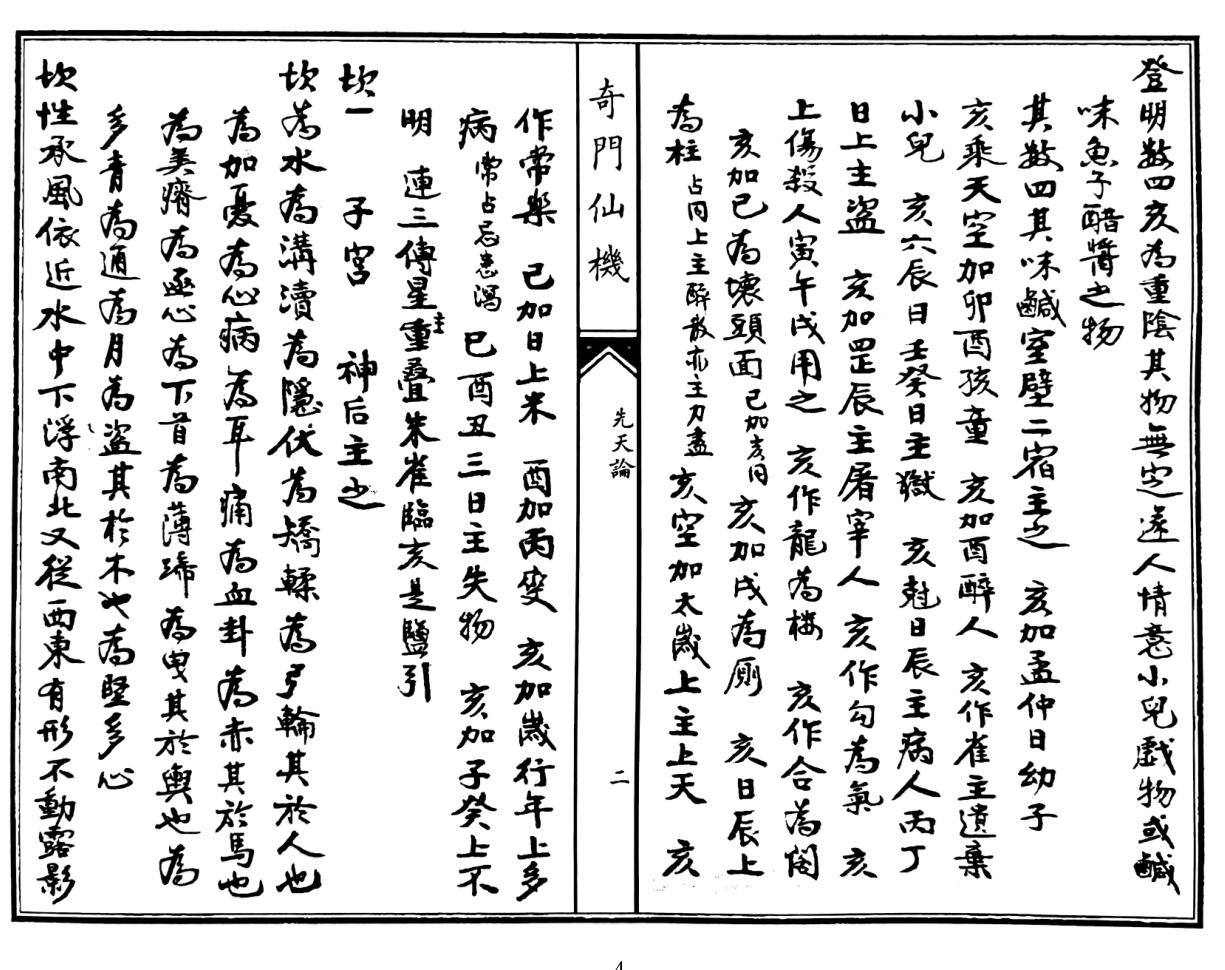 登明數四亥為重陰其物無定遂人情意小兒戲物或鹹
味魚子醋醬之物
其數四其味鹹室壁二宿主之　亥加孟仲日幼子
亥乘天空加卯酉孩童　亥加酉醉人　亥作雀主遺棄
小兒　亥六辰日壬癸日主獄　亥尅日辰主病人丙丁
日上主盜　亥加罡辰主屠宰人　亥作勾為氣　亥
上傷殺人寅午戌用之　亥作龍為樓　亥作合為閣
亥加巳為壞頭面　巳加亥同　亥加戌為厠　亥日辰上
為柱　占同上主醉散亦主刀盡　亥空加太歲上主上天　亥
奇門仙機
先天論
二
作常樂　巳加日上米　酉加丙突　亥加歲行年上多
病　常占忌患瀉　巳酉丑三日主失物　亥加子癸上不
明　連三傳星主重叠朱雀臨亥是鹽引
坎一　子宮　神后主之
坎為水為溝瀆為隱伏為矯輮為弓輪其於人也
為加憂為心病為耳痛為血卦為赤其於馬也
為美瘠為亟心為下首為薄蹄為曳其於輿也為
多眚為通為月為盜其於木也為堅多心
坎性承風依近水中下浮南北又從西東有形不動露影
4